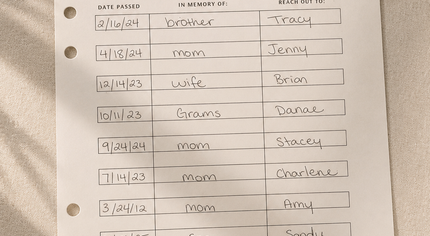 DATE PASSED IN MEMORY OF: REACH OUT TO:
2/16/24 brother Tracy
4/18/24 mom Jenny
12/14/23 wife Brian
10/11/23 Grams Danae
9/24/24 mom Stacey
7/14/23 mom Charlene
3/24/12 mom Amy
Sandy